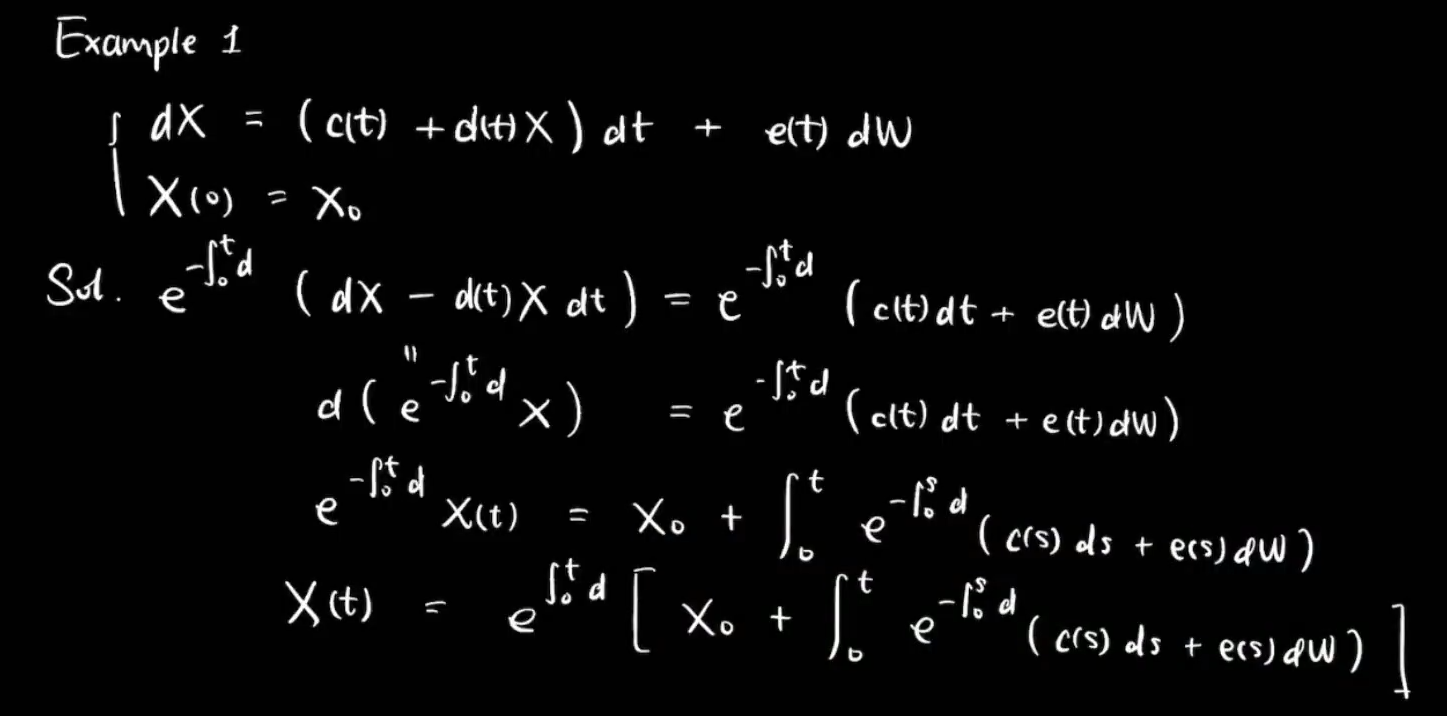 Example 1
{ dX = (c(t) + d(t)X) dt + e(t) dW
X(0) = X₀
Sol. e^{-∫₀ᵗ d} (dX − d(t)X dt) = e^{-∫₀ᵗ d} (c(t)dt + e(t)dW)
"
d(e^{-∫₀ᵗ d} X) = e^{-∫₀ᵗ d} (c(t) dt + e(t)dW)
e^{-∫₀ᵗ d} X(t) = X₀ + ∫₀ᵗ e^{-∫₀ˢ d} (c(s) ds + e(s)dW)
X(t) = e^{∫₀ᵗ d} [ X₀ + ∫₀ᵗ e^{-∫₀ˢ d} (c(s) ds + e(s)dW) ]